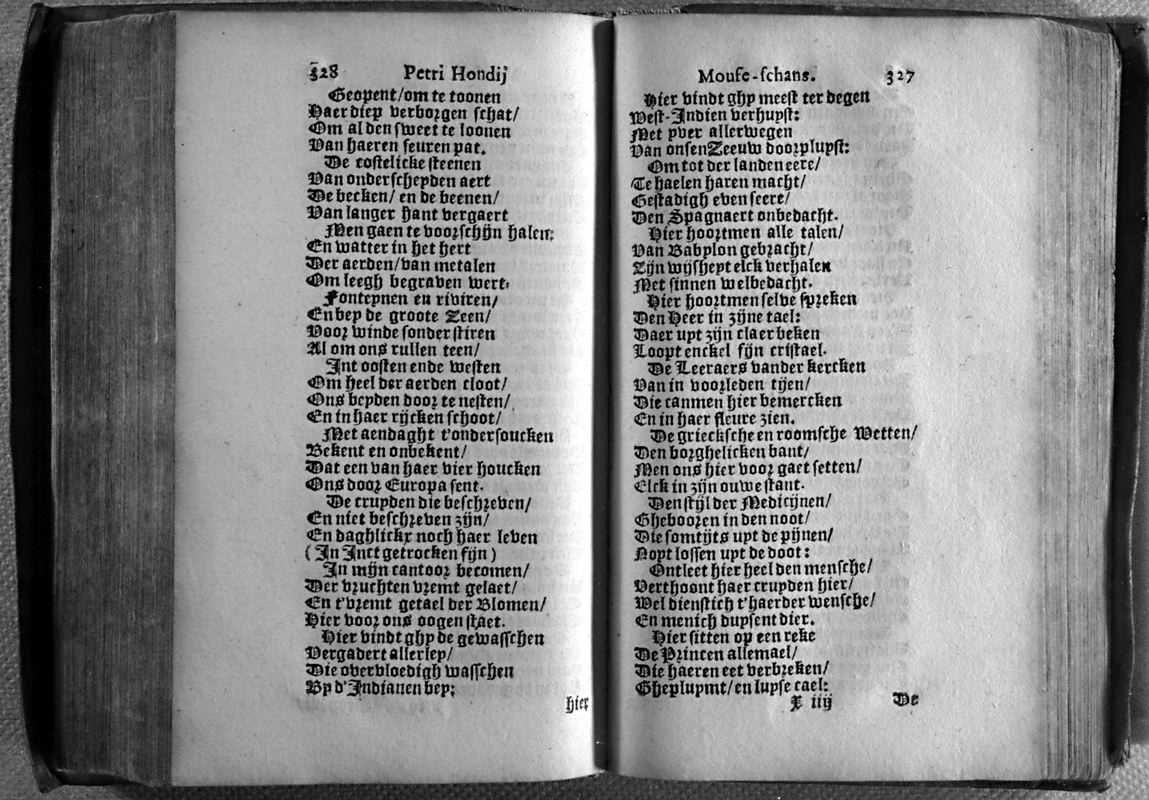 328 Petri Hondij
Geopent/om te toonen
Haer diep verborgen schat/
Om al den sweet te loonen
Van haeren seuren pat.
De costelicke steenen
Van onderscheyden aert
De becken/ en de beenen/
Van langer hant vergaert
Men gaen te voorschijn halen:
En watter in het hert
Der aerden/van metalen
Om leegh begraven wert.
Fonteynen en riviren/
En bey de groote Zeen/
Voor winde sonder stiren
Al om ons rullen teen/
Int oosten ende westen
Om heel der aerden cloot/
Ons beyden door te nesten/
En in haer rijcken schoot/
Met aendaght t'ondersoucken
Bekent en onbekent/
Dat een van haer vier houcken
Ons door Europa sent.
De cruyden die beschreven/
En niet beschreven zijn/
En daghlickx noch haer leven
(In Inct getrocken sijn)
In mijn cantoor becomen/
Der vruchten vremt gelaet/
En t'vremt getael der Blomen/
Hier voor ons oogen staet.
Hier vindt ghy de gewasschen
Vergadert allerley/
Die overvloedigh wasschen
By d'Indianen bey;
hier
Mouse-schans. 327
Hier vindt ghy meest ter degen
West-Indien verhuyst:
Met yver allerwegen
Van onsen Zeeuw doorpluyst:
Om tot der landen eere/
Te haelen haren macht/
Gestadigh even seere/
Den Spagnaert onbedacht.
Hier hoortmen alle talen/
Van Babylon gebracht/
Zijn wijsheyt elck verhalen
Met sinnen welbedacht.
Hier hoortmen selve spreken
Den Heer in zijne tael:
Daer uyt zijn claer beken
Loopt enckel fijn cristael.
De Leeraers vander kercken
Van in voorleden tijen/
Die canmen hier bemercken
En in haer fleure zien.
De griecksche en roomsche Wetten/
Den borghelicken bant/
Men ons hier voor gaet setten/
Elck in zijn ouwe stant.
Den stijl der Medicijnen/
Ghebooren in den noot/
Die somtijts uyt de pijnen/
Noyt lossen uyt de doot:
Ontleet hier heel den mensche/
Verthoont haer cruyden hier/
Wel dienstich t'haerder wensche/
En menich duysent dier.
Hier sitten op een reke
De Princen allemael/
Die haeren eet verbreken/
Ghepluymt/en luyse cael:
X iiij De